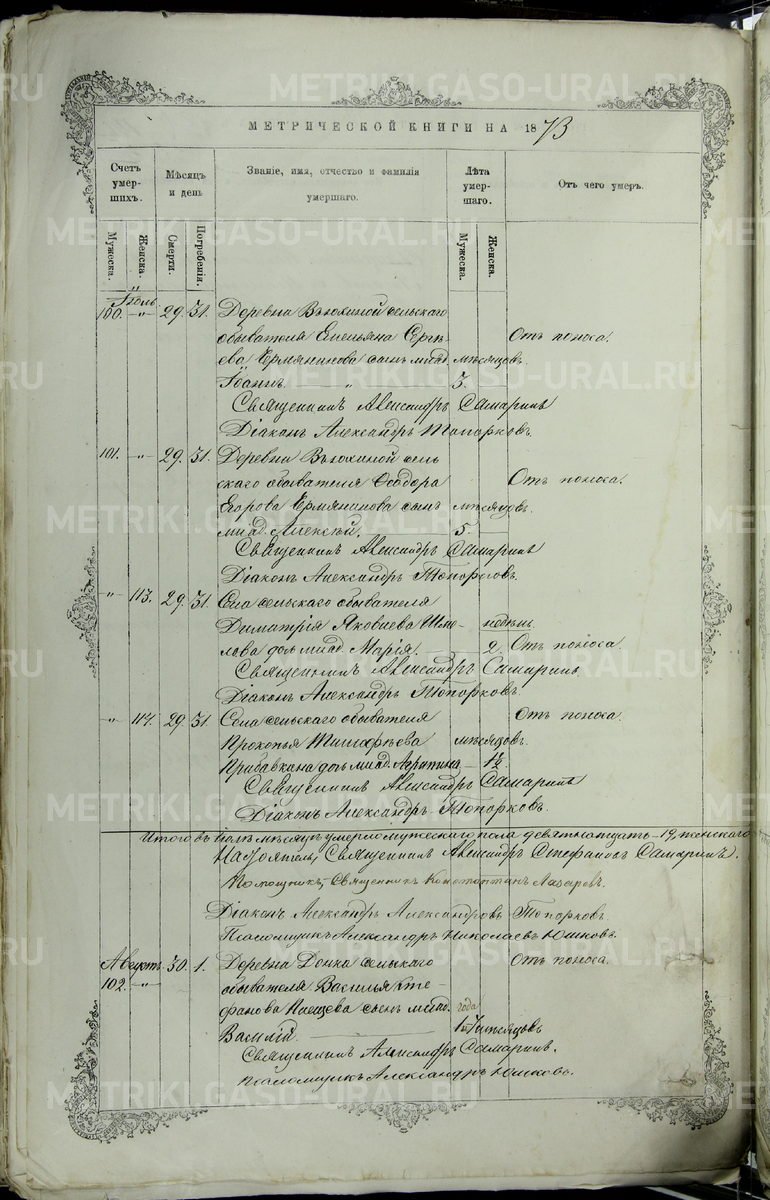 METRIKI.GASO-URAL.RU
МЕТРИЧЕСКОЙ КНИГИ НА 1873
Счетъ умер-шихъ.
Мѣсяцъ и день
Званіе, имя, отчество и фамилія умершаго.
Лѣта умер-шаго.
Отъ чего умеръ.
Мужеска.
Женска.
Смерти.
Погребенія.
Мужеска.
Женска.
Іюль.
100. -"- 29. 31. Деревни Вьюхиной сельскаго
обывателя Емельяна Сергѣ- Отъ поноса.
ева Ермянинова сынъ млад. мѣсяцовъ.
Іоаннъ. " 3.
Священникъ Александръ Самаринъ
Діаконъ Александръ Топорковъ.
101. -"- 29. 31. Деревни Вьюхиной сель
скаго обывателя Ѳеодора Отъ поноса.
Егорова Ермянинова сынъ мѣсяцовъ.
млад. Алексѣй. 5.
Священникъ Александръ Самаринъ
Діаконъ Александръ Топорковъ.
-"- 113. 29. 31. Села сельскаго обывателя
Димитрія Яковлева недѣли.
лова дочь млад. Марія. 2. Отъ поноса.
Священникъ Александръ Самаринъ.
Діаконъ Александръ Топорковъ.
-"- 114. 29. 31. Села сельскаго обывателя Отъ поноса.
Прокопья мѣсяцовъ.
дочь млад. Агрипина 1½
Священникъ Александръ Самаринъ
Діаконъ Александръ Топорковъ.
Итого въ Іюлѣ мѣсяцѣ умерло мужескаго пола девятнатцать - 19, женскаго
Настоятель, Священникъ Александръ Стефановъ Самаринъ.
Помощникъ, Священникъ Константинъ Лазаревъ.
Діаконъ Александръ Александровъ Топорковъ.
Псаломщикъ Александръ Николаевъ Юшковъ.
Августъ. 30. 1. Деревни сельскаго Отъ поноса.
102. -"- обывателя Василья Сте-
фанова сынъ млад. года
Василій. 1 мѣсяцовъ
Священникъ Александръ Самаринъ.
Псаломщикъ Александръ Юшковъ.